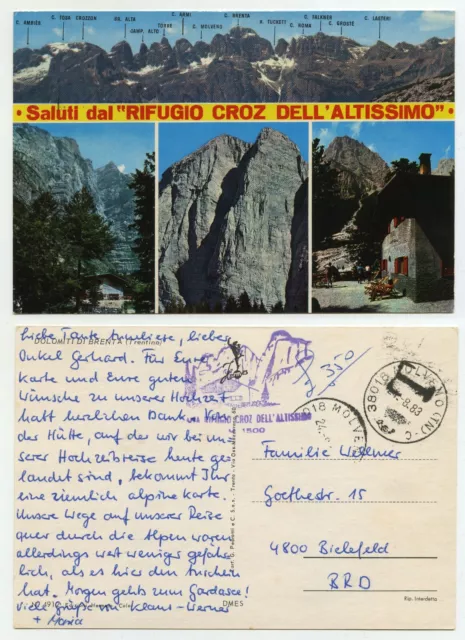 C. AMBIÉS
C. TOSA CROZZON
NA. ALTA
CAMP. ALTO
TORRE
C. ARMI
C. MOLVENO
C. BRENTA
P. TUCKETT
C. ROMA
C. FALKNER
C. GROSTÉ
C. LASTERI
• Saluti dal "RIFUGIO CROZ DELL'ALTISSIMO" •
DOLOMITI DI BRENTA (Trentino)
Liebe Tante Anneliese, lieber
Onkel Gerhard. Für Eure
Karte und Eure guten
Wünsche zu unserer Hochzeit
habt herzlichen Dank. Von
der Hütte, auf der wir bei un-
serer Hochzeitsreise heute ge-
landet sind, bekommt Ihr
eine ziemlich alpine Karte.
Unsere Wege auf unserer Reise
quer durch die Alpen waren
allerdings weit weniger gefähr-
lich, als es hier den Anschein
hat. Morgen gehts zum Gardasee!
Viele Grüße von Klaus-Werner
+ Maria
RIFUGIO CROZ DELL'ALTISSIMO
1500
350
38018 MOLVENO (TN)
8.83
T
38018 MOLVENO
Familie
Goethestr. 15
4800 Bielefeld
BRD
DMES
Rip. Interdetta